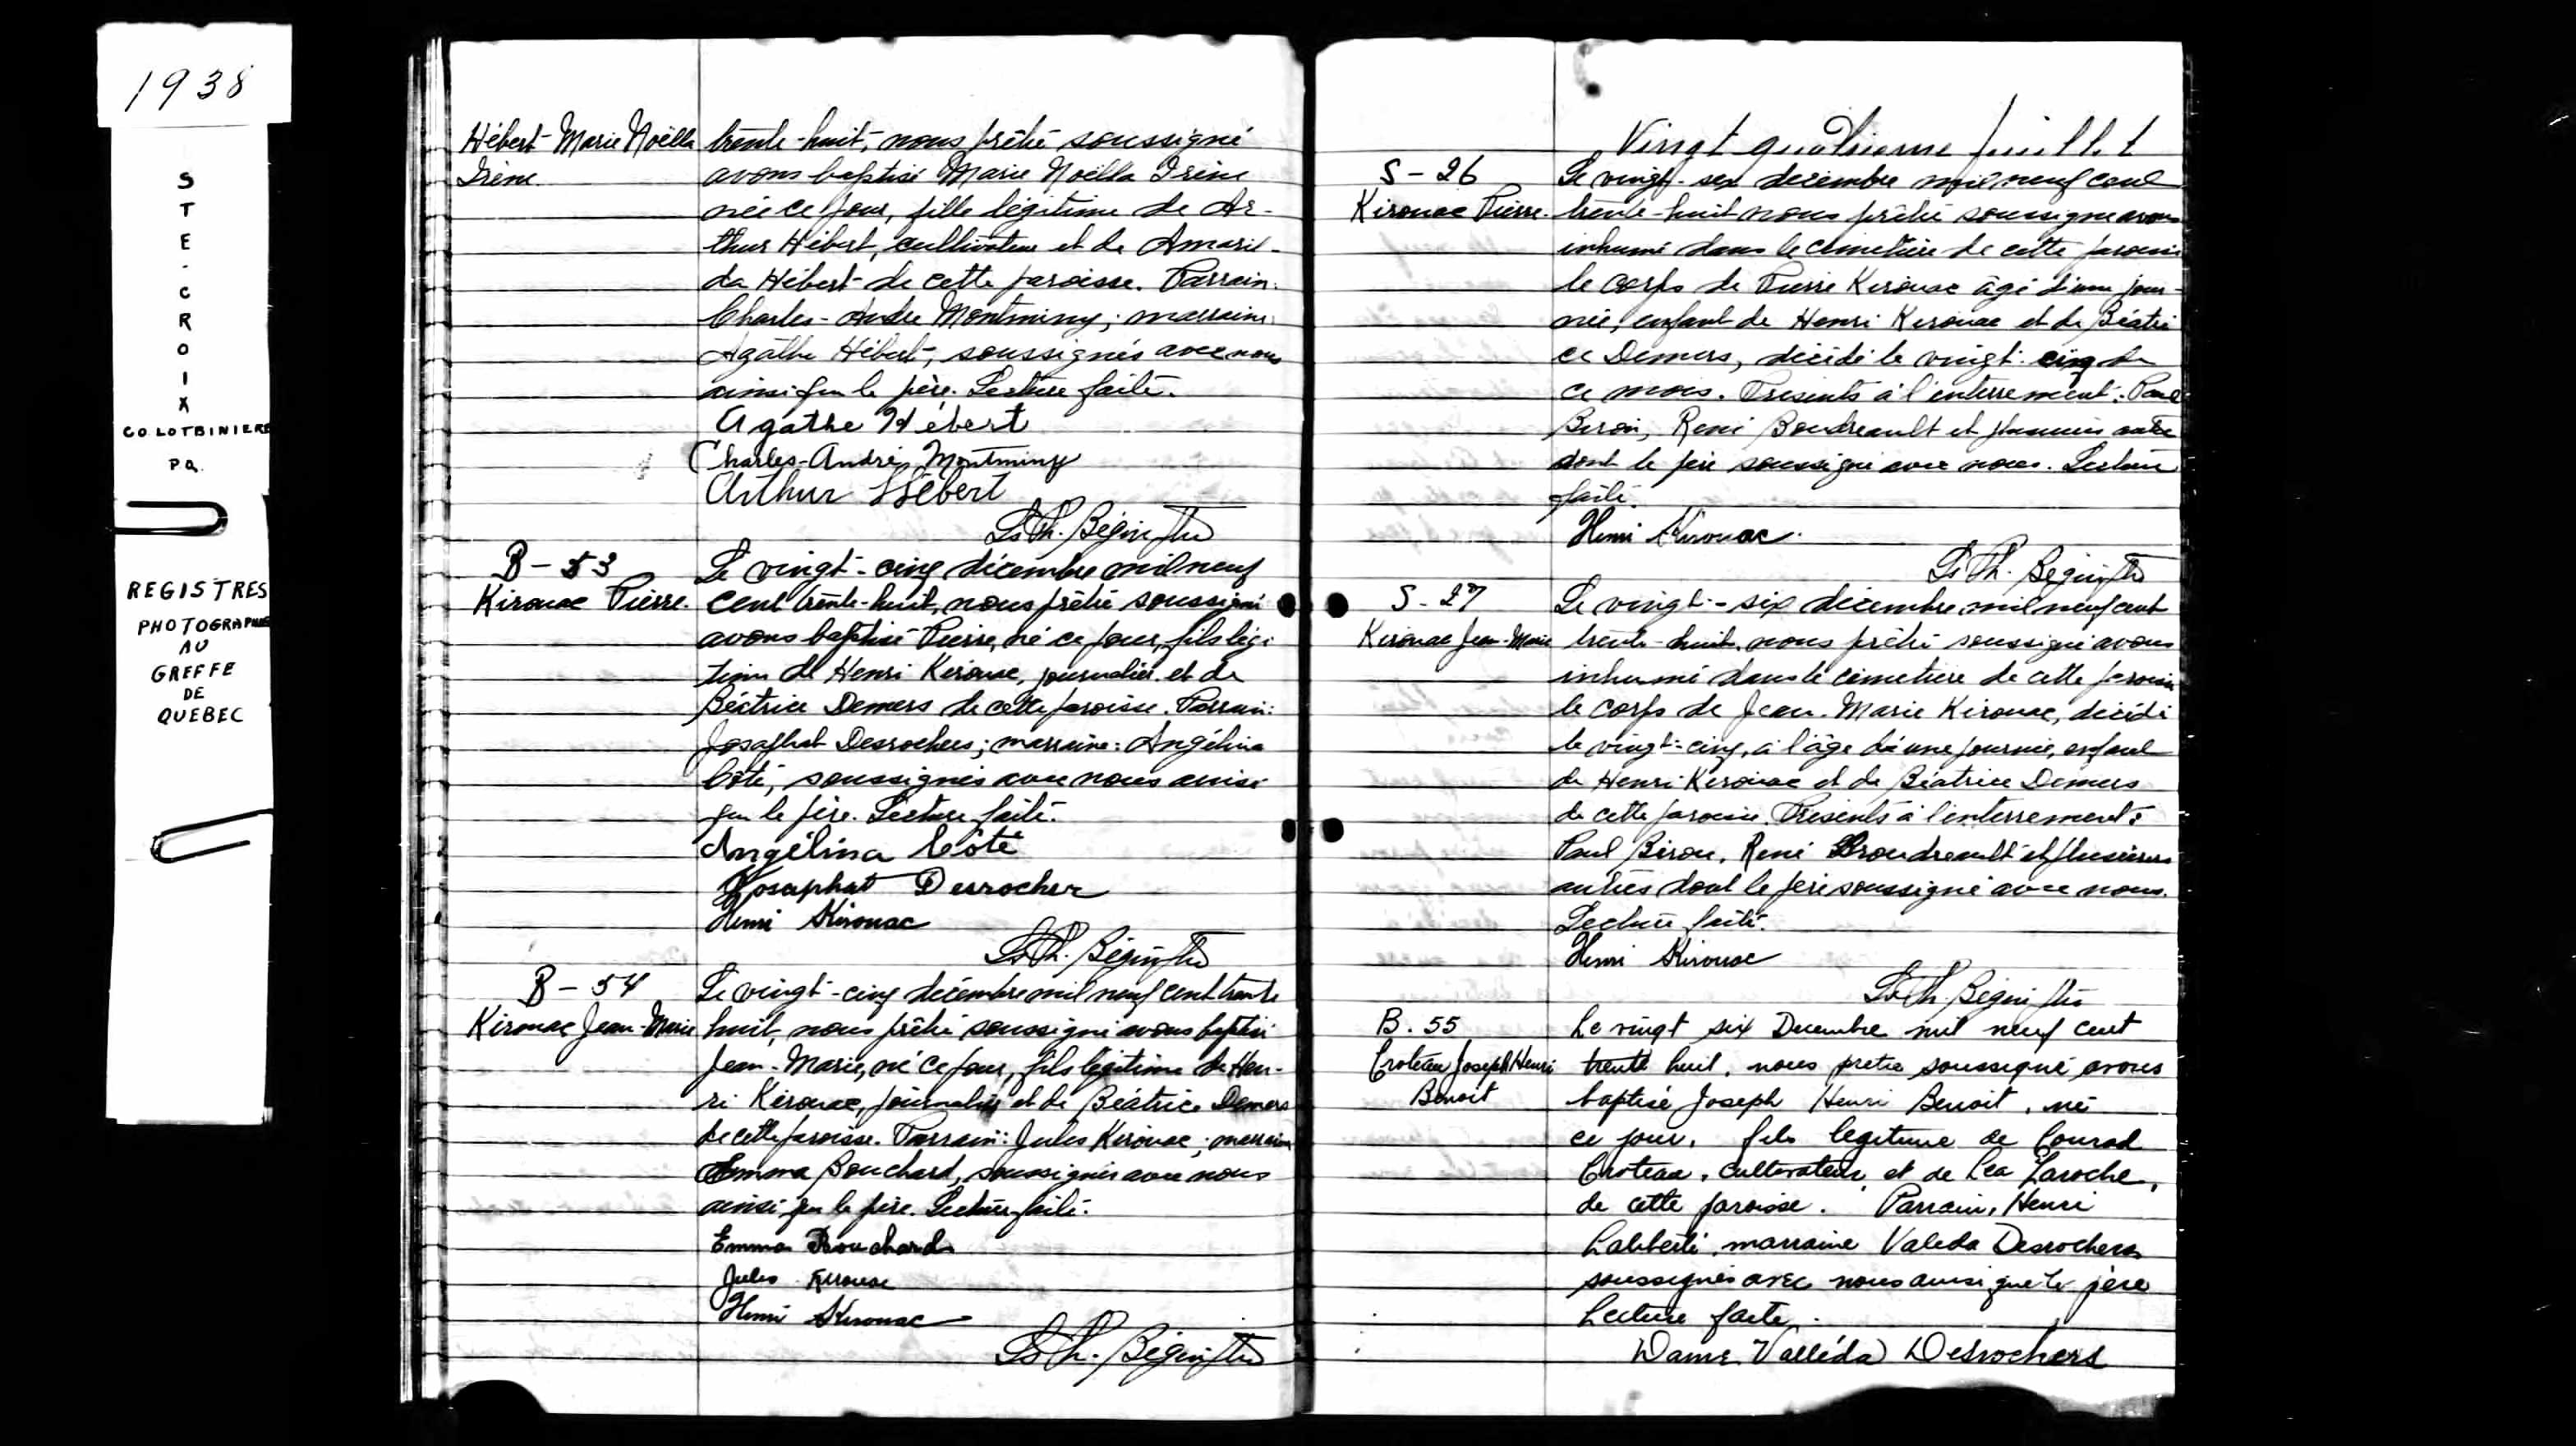 1938
STE-CROIX
CO LOTBINIERE
P.Q.
REGISTRES
PHOTOGRAPHIES
AU
GREFFE
DE
QUEBEC
Hébert Marie Noëlla
Irène
trente-huit, nous prêtre soussigné
avons baptisé Marie Noëlla Irène
née ce jour, fille légitime de Ar-
thur Hébert, cultivateur et de Amaril-
da Hébert de cette paroisse. Parrain:
Charles-André Montminy; marraine:
Agathe Hébert, soussignés avec nous
ainsi que le père. Lecture faite.
Agathe Hébert
Charles-André Montminy
Arthur Hébert
Ls Ph. Bégin ptre
B-53
Kirouac Pierre.
Le vingt-cinq décembre mil neuf
cent trente-huit, nous prêtre soussigné
avons baptisé Pierre, né ce jour, fils légi-
time de Henri Kirouac, journalier et de
Béatrice Demers de cette paroisse. Parrain:
Josaphat Desrochers; marraine: Angélina
Côté, soussignés avec nous ainsi
que le père. Lecture faite.
Angélina Côté
Josaphat Desrocher
Henri Kirouac
Ls Ph. Bégin ptre
B-54
Kirouac Jean-Marie
Le vingt-cinq décembre mil neuf cent trente
huit, nous prêtre soussigné avons baptisé
Jean-Marie, né ce jour, fils légitime de Hen-
ri Kirouac, journalier et de Béatrice Demers
de cette paroisse. Parrain: Jules Kirouac; marraine
Emma Bouchard, soussignés avec nous
ainsi que le père. Lecture faite.
Emma Bouchard
Jules Kirouac
Henri Kirouac
Ls Ph. Bégin ptre
Vingt quatrieme feuillet
S-26
Kirouac Pierre.
Le vingt-six décembre mil neuf cent
trente-huit nous prêtre soussigné avons
inhumé dans le cimetière de cette paroisse
le corps de Pierre Kirouac âgé d'une jour-
née, enfant de Henri Kirouac et de Béatri
ce Demers, décédé le vingt-cinq de
ce mois. Présents à l'enterrement: Paul
Biron, René Boudreault et plusieurs autres
dont le père soussigné avec nous. Lecture
faite.
Henri Kirouac.
Ls Ph. Bégin ptre
S-27
Kirouac Jean-Marie
Le vingt-six décembre mil neuf cent
trente-huit, nous prêtre soussigné avons
inhumé dans le cimetière de cette paroisse
le corps de Jean-Marie Kirouac, décédé
le vingt-cinq, à l'âge d'une journée, enfant
de Henri Kirouac et de Béatrice Demers
de cette paroisse. Présents à l'enterrement:
Paul Biron, René Boudreault et plusieurs
autres dont le père soussigné avec nous.
Lecture faite.
Henri Kirouac
Ls Ph. Bégin ptre
B. 55
Croteau Joseph Henri
Benoit
Le vingt six Decembre mil neuf cent
trente huit, nous pretre soussigné avons
baptisé Joseph Henri Benoit, né
ce jour, fils legitime de Conrad
Croteau, cultivateur, et de Léa Laroche,
de cette paroisse. Parrain, Henri
Laliberté, marraine Valeda Desrochers
soussignés avec nous ainsi que le père
Lecture faite.
Dame Valléda Desrochers